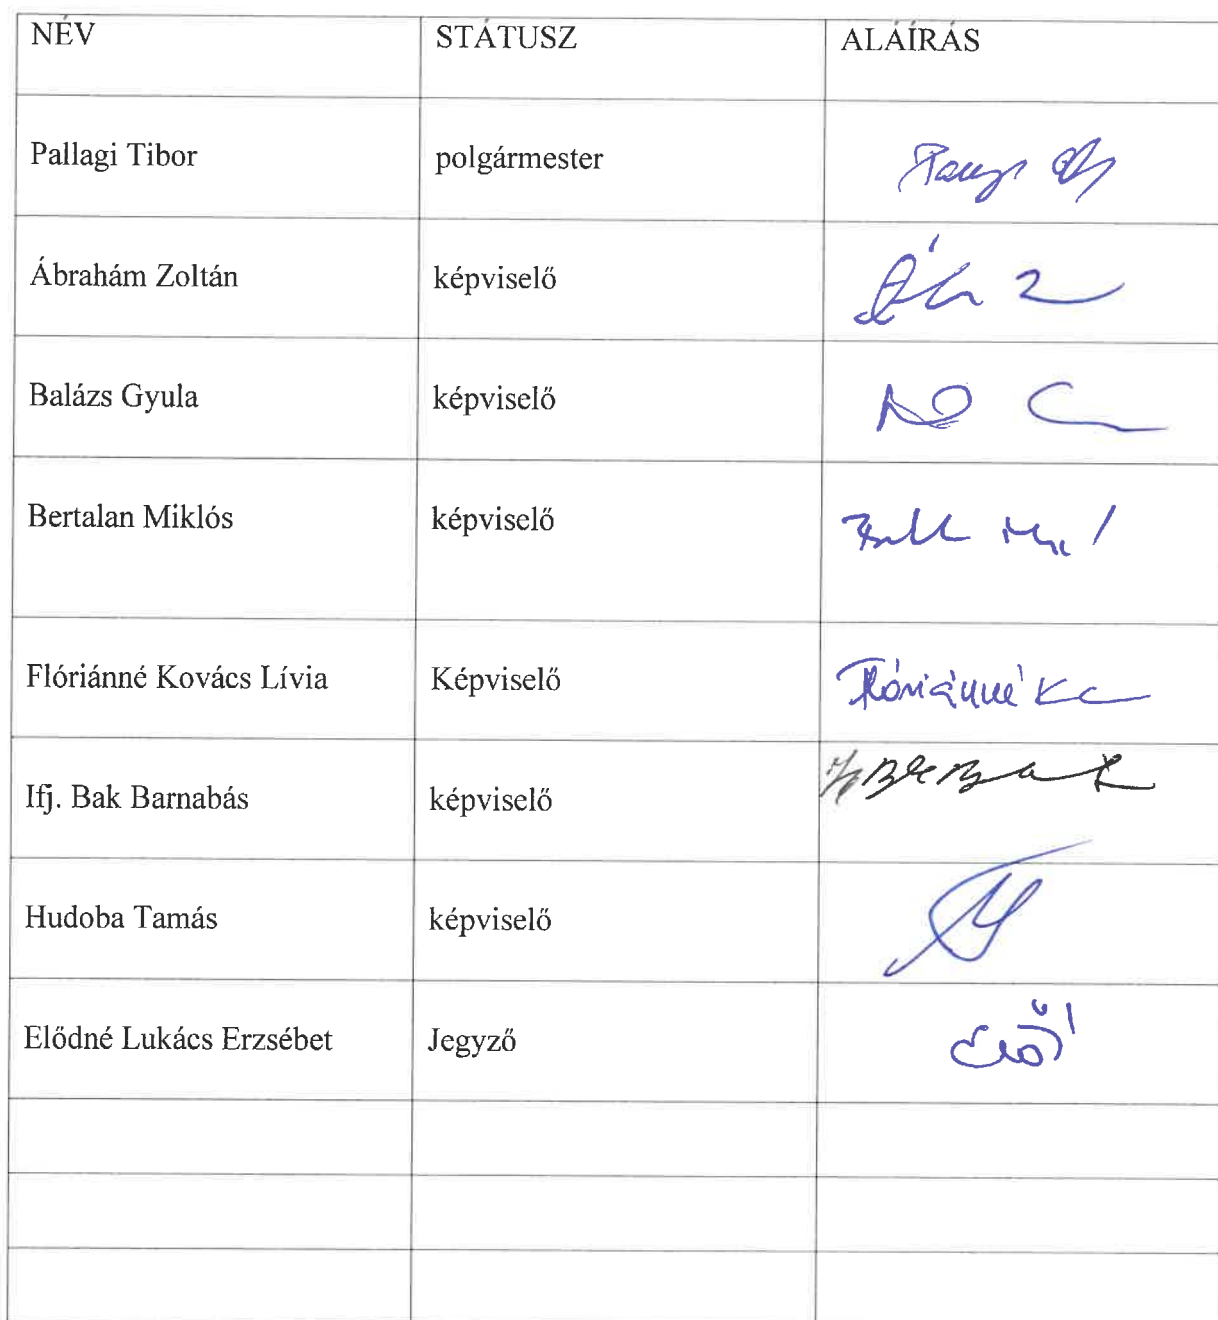 NÉV STÁTUSZ ALÁÍRÁS
Pallagi Tibor polgármester
Ábrahám Zoltán képviselő
Balázs Gyula képviselő
Bertalan Miklós képviselő
Flóriánné Kovács Lívia Képviselő Flóriánné
Ifj. Bak Barnabás képviselő
Hudoba Tamás képviselő
Elődné Lukács Erzsébet Jegyző